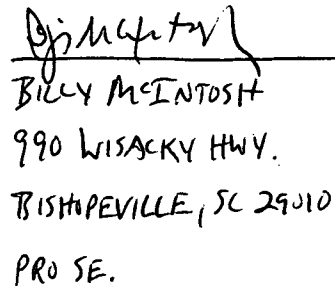 BILLY McINTOSH
990 WISACKY HWY.
BISHOPEVILLE, SC 29010
PRO SE.